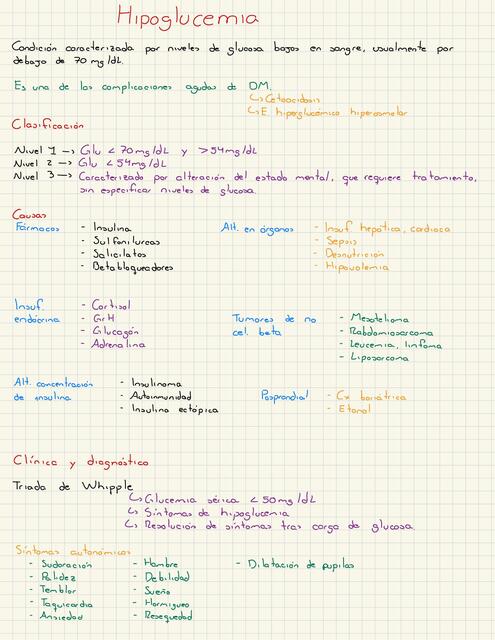 Hipoglucemia
Condición caracterizada por niveles de glucosa bajos en sangre, usualmente por
debajo de 70 mg/dL.
Es una de las complicaciones agudas de DM.
↳ Cetoacidosis
↳ E. hiperglucémico hiperosmolar
Clasificación
Nivel 1 → Glu < 70 mg/dL y > 54 mg/dL
Nivel 2 → Glu < 54 mg/dL
Nivel 3 → Caracterizado por alteración del estado mental, que requiere tratamiento,
sin especificar niveles de glucosa.
Causas
Fármacos
- Insulina
- Sulfonilureas
- Salicilatos
- Betabloqueadores
Alt. en órganos
- Insuf. hepática, cardiaca
- Sepsis
- Desnutrición
- Hipovolemia
Insuf.
endócrina
- Cortisol
- GrH
- Glucagón
- Adrenalina
Tumores de no
cel. beta
- Mesotelioma
- Rabdomiosarcoma
- Leucemia, linfoma
- Liposarcoma
Alt. concentración
de insulina
- Insulinoma
- Autoinmunidad
- Insulina ectópica
Posprandial
- Cx bariátrica
- Etanol
Clínica y diagnóstico
Triada de Whipple
↳ Glucemia sérica < 50 mg/dL
↳ Síntomas de hipoglucemia
↳ Resolución de síntomas tras carga de glucosa
Síntomas autonómicos
- Sudoración
- Palidez
- Temblor
- Taquicardia
- Ansiedad
- Hambre
- Debilidad
- Sueño
- Hormigueo
- Resequedad
- Dilatación de pupilas